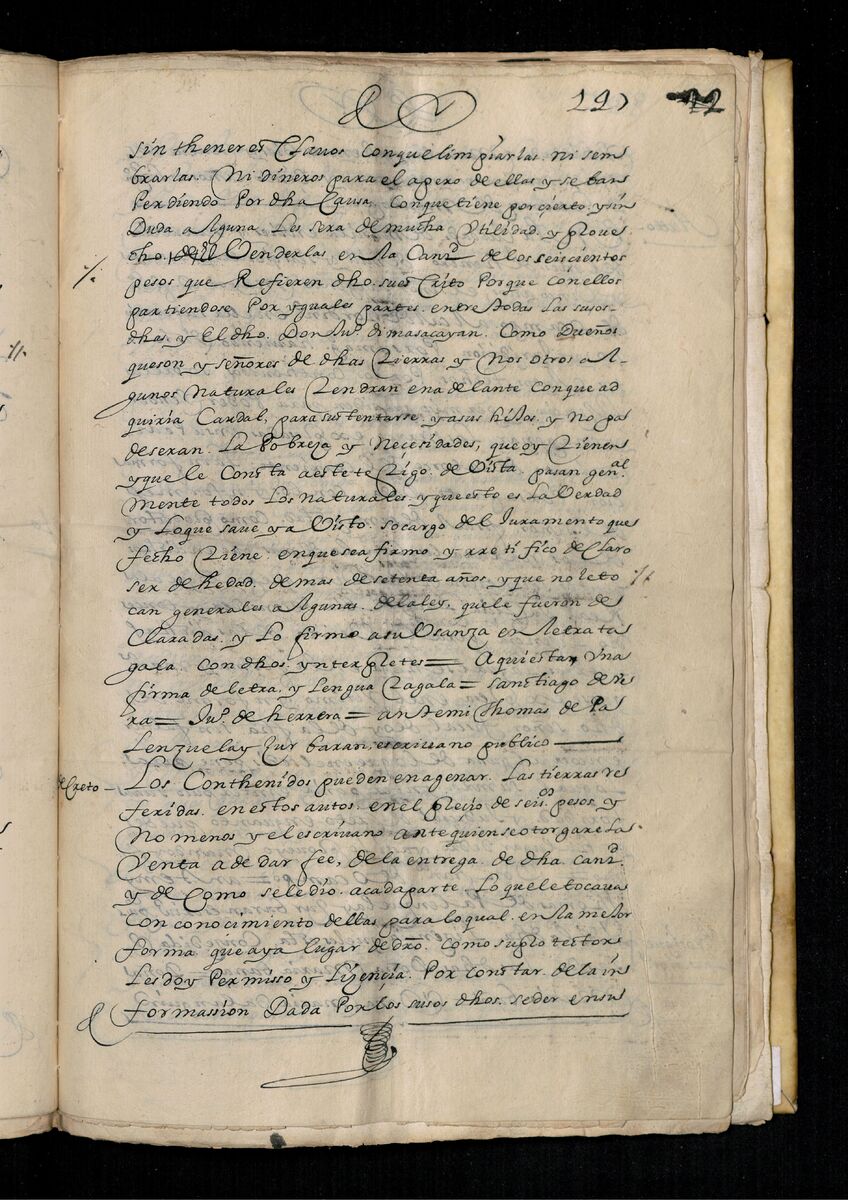 197 22
sin tener esclauos con que limpiarlas. ni sem
brarlas. Ni dineros para el apero de ellas y se ban
Perdiendo Por dha Causa. Con que tiene por çierto y sin
Duda alguna. Les sera de mucha Vtilidad. y proue
cho. Venderlas en la Cand. de los seiscientos
pesos que Refieren dho. su escrito Porque con ellos
partiendose Por yguales partes. entre todas Las suso-
dhas. y El dho. Don Juº. dimasacayan. Como Dueños
que son y señores de dhas tierras y Nosotros al-
gunos Naturales tendran en adelante con que ad
quiria Caudal, para sustentarse y a sus hijos. y No pa
deseran. La Pobreza y Necesidades, que oy tienen
y que le Consta a este testigo. de Vista. pasan genal.
Mente todos Los naturales. y que esto es La Verdad
y Lo que saue y a Visto. so cargo del Juramento que
fecho tiene. en que se afirmo y rretifico declaro
ser de hedad. de mas de setenta años y que no le to
can generales algunas. de la ley, que le fueron de
Claradas. y Lo firmo a su Vsanza en letra ta
gala. Con dhos. ynterpletes = Aqui esta Vna
firma de letra y Lengua tagala = santiago de ve
ra = Juº. de herrera = ante mi Thomas de Pa
Lenzuela y zurbaran, escriuano publico
decreto - Los Conthenidos pueden enagenar. Las tierras re
feridas. en estos autos. en el preçio de seisos pesos y
No menos y el escriuano ante quien se otorgare La
Venta a de dar fee, de la entrega de dha Cand.
y de Como se le dio a cada parte. Lo que le tocaua
Con conocimiento dellas para lo qual. en la mejor
forma que aya lugar de dro. como su protector
Les doy Permisso y Liçencia. Por constar. de la in
formassion Dada Por los susos dhos. seder en su